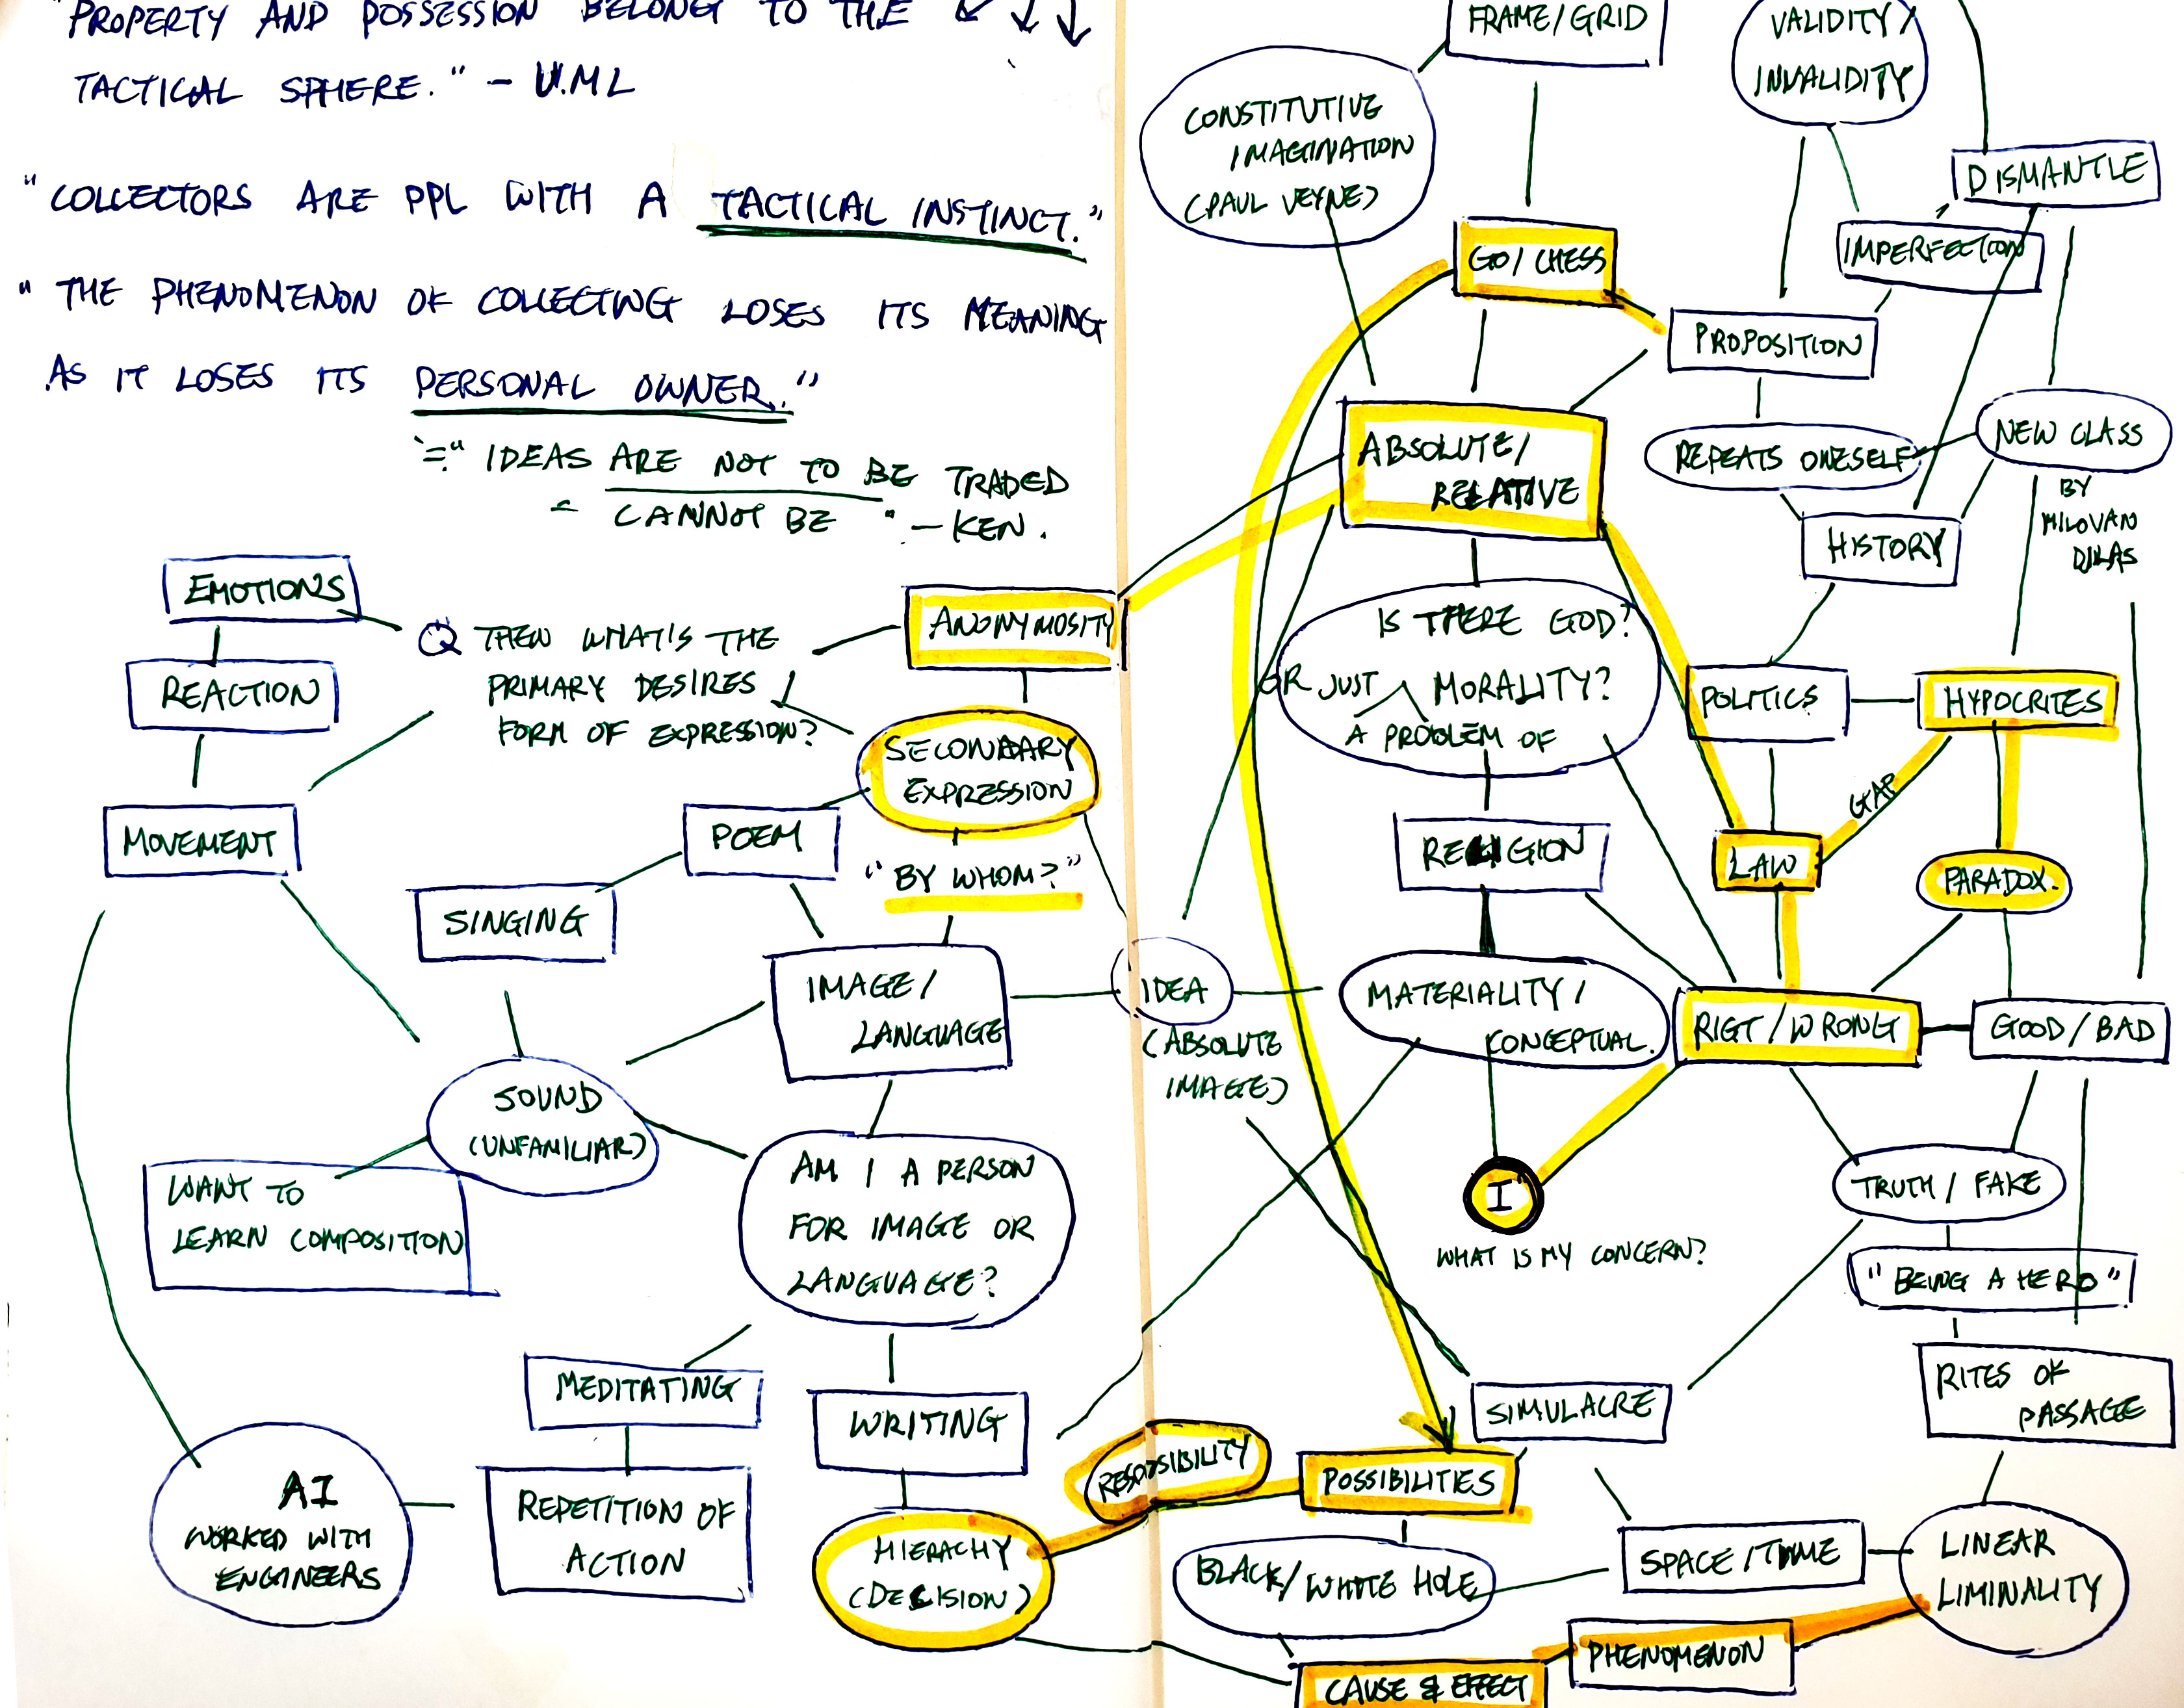 "PROPERTY AND POSSESSION BELONG TO THE
TACTICAL SPHERE." - U.ML
"COLLECTORS ARE PPL WITH A TACTICAL INSTINCT."
"THE PHENOMENON OF COLLECTING LOSES ITS MEANING
AS IT LOSES ITS PERSONAL OWNER."
= "IDEAS ARE NOT TO BE TRADED
CANNOT BE " - KEN.
EMOTIONS
REACTION
MOVEMENT
Q THEN WHAT'S THE
PRIMARY DESIRES
FORM OF EXPRESSION?
ANONYMOSITY
SECONDARY
EXPRESSION
POEM
"BY WHOM?"
SINGING
IMAGE/
LANGUAGE
SOUND
(UNFAMILIAR)
WANT TO
LEARN COMPOSITION
AM I A PERSON
FOR IMAGE OR
LANGUAGE?
MEDITATING
WRITING
AI
WORKED WITH
ENGINEERS
REPETITION OF
ACTION
HIERACHY
(DECISION)
IDEA
(ABSOLUTE
IMAGE)
FRAME/GRID
VALIDITY/
INVALIDITY
CONSTITUTIVE
IMAGINATION
(PAUL VEYNE)
DISMANTLE
GO/CHESS
IMPERFECTION
PROPOSITION
ABSOLUTE/
RELATIVE
REPEATS ONESELF
NEW CLASS
BY
MILOVAN
DJILAS
HISTORY
IS THERE GOD?
OR JUST MORALITY?
A PROBLEM OF
POLITICS
HYPOCRITES
GAP
RELIGION
LAW
PARADOX.
MATERIALITY/
CONCEPTUAL.
RIGT/WRONG
GOOD/BAD
I
WHAT IS MY CONCERN?
TRUTH/FAKE
"BEING A HERO"
RITES OF
PASSAGE
SIMULACRE
RESPOSIBILITY
POSSIBILITIES
BLACK/WHITE HOLE
SPACE/TIME
LINEAR
LIMINALITY
PHENOMENON
CAUSE & EFFECT